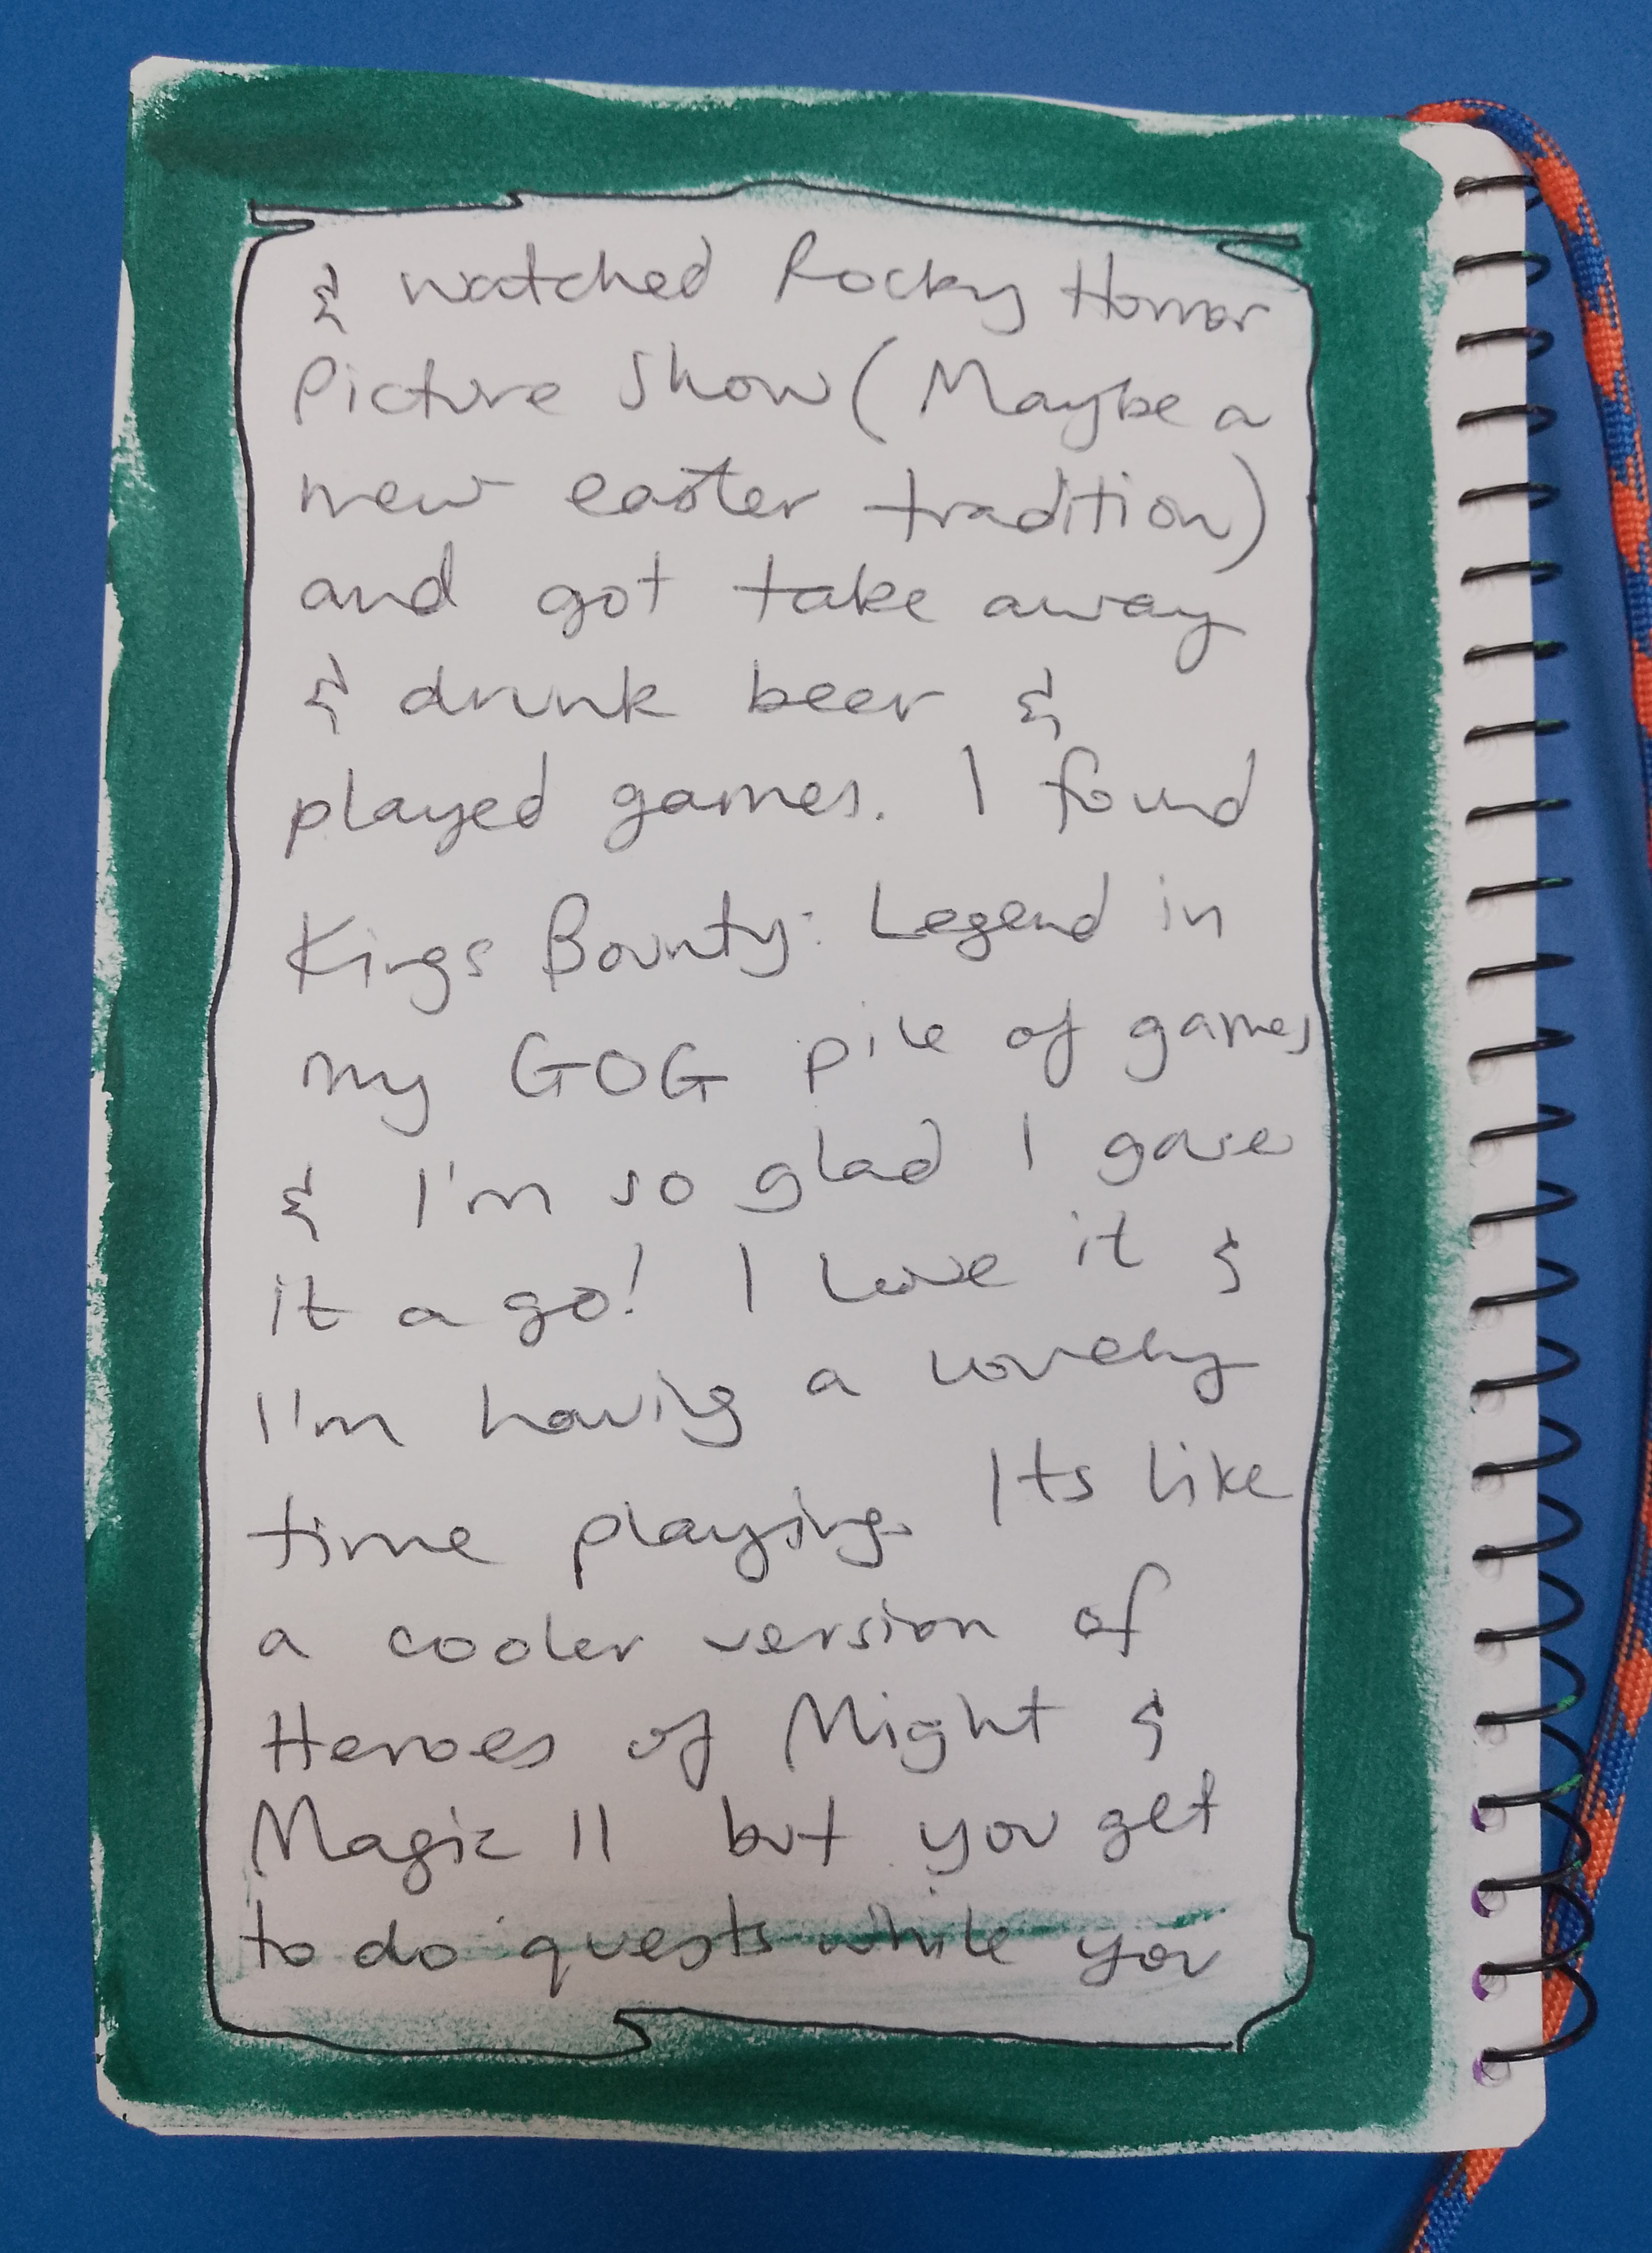 & watched Rocky Horror
Picture Show (Maybe a
new easter tradition)
and got take away
& drunk beer &
played games. I found
Kings Bounty: Legend in
my GOG pile of games
& I'm so glad I gave
it a go! I love it &
I'm having a lovely
time playing. Its like
a cooler version of
Heroes of Might &
Magic II but you get
to do quests while you